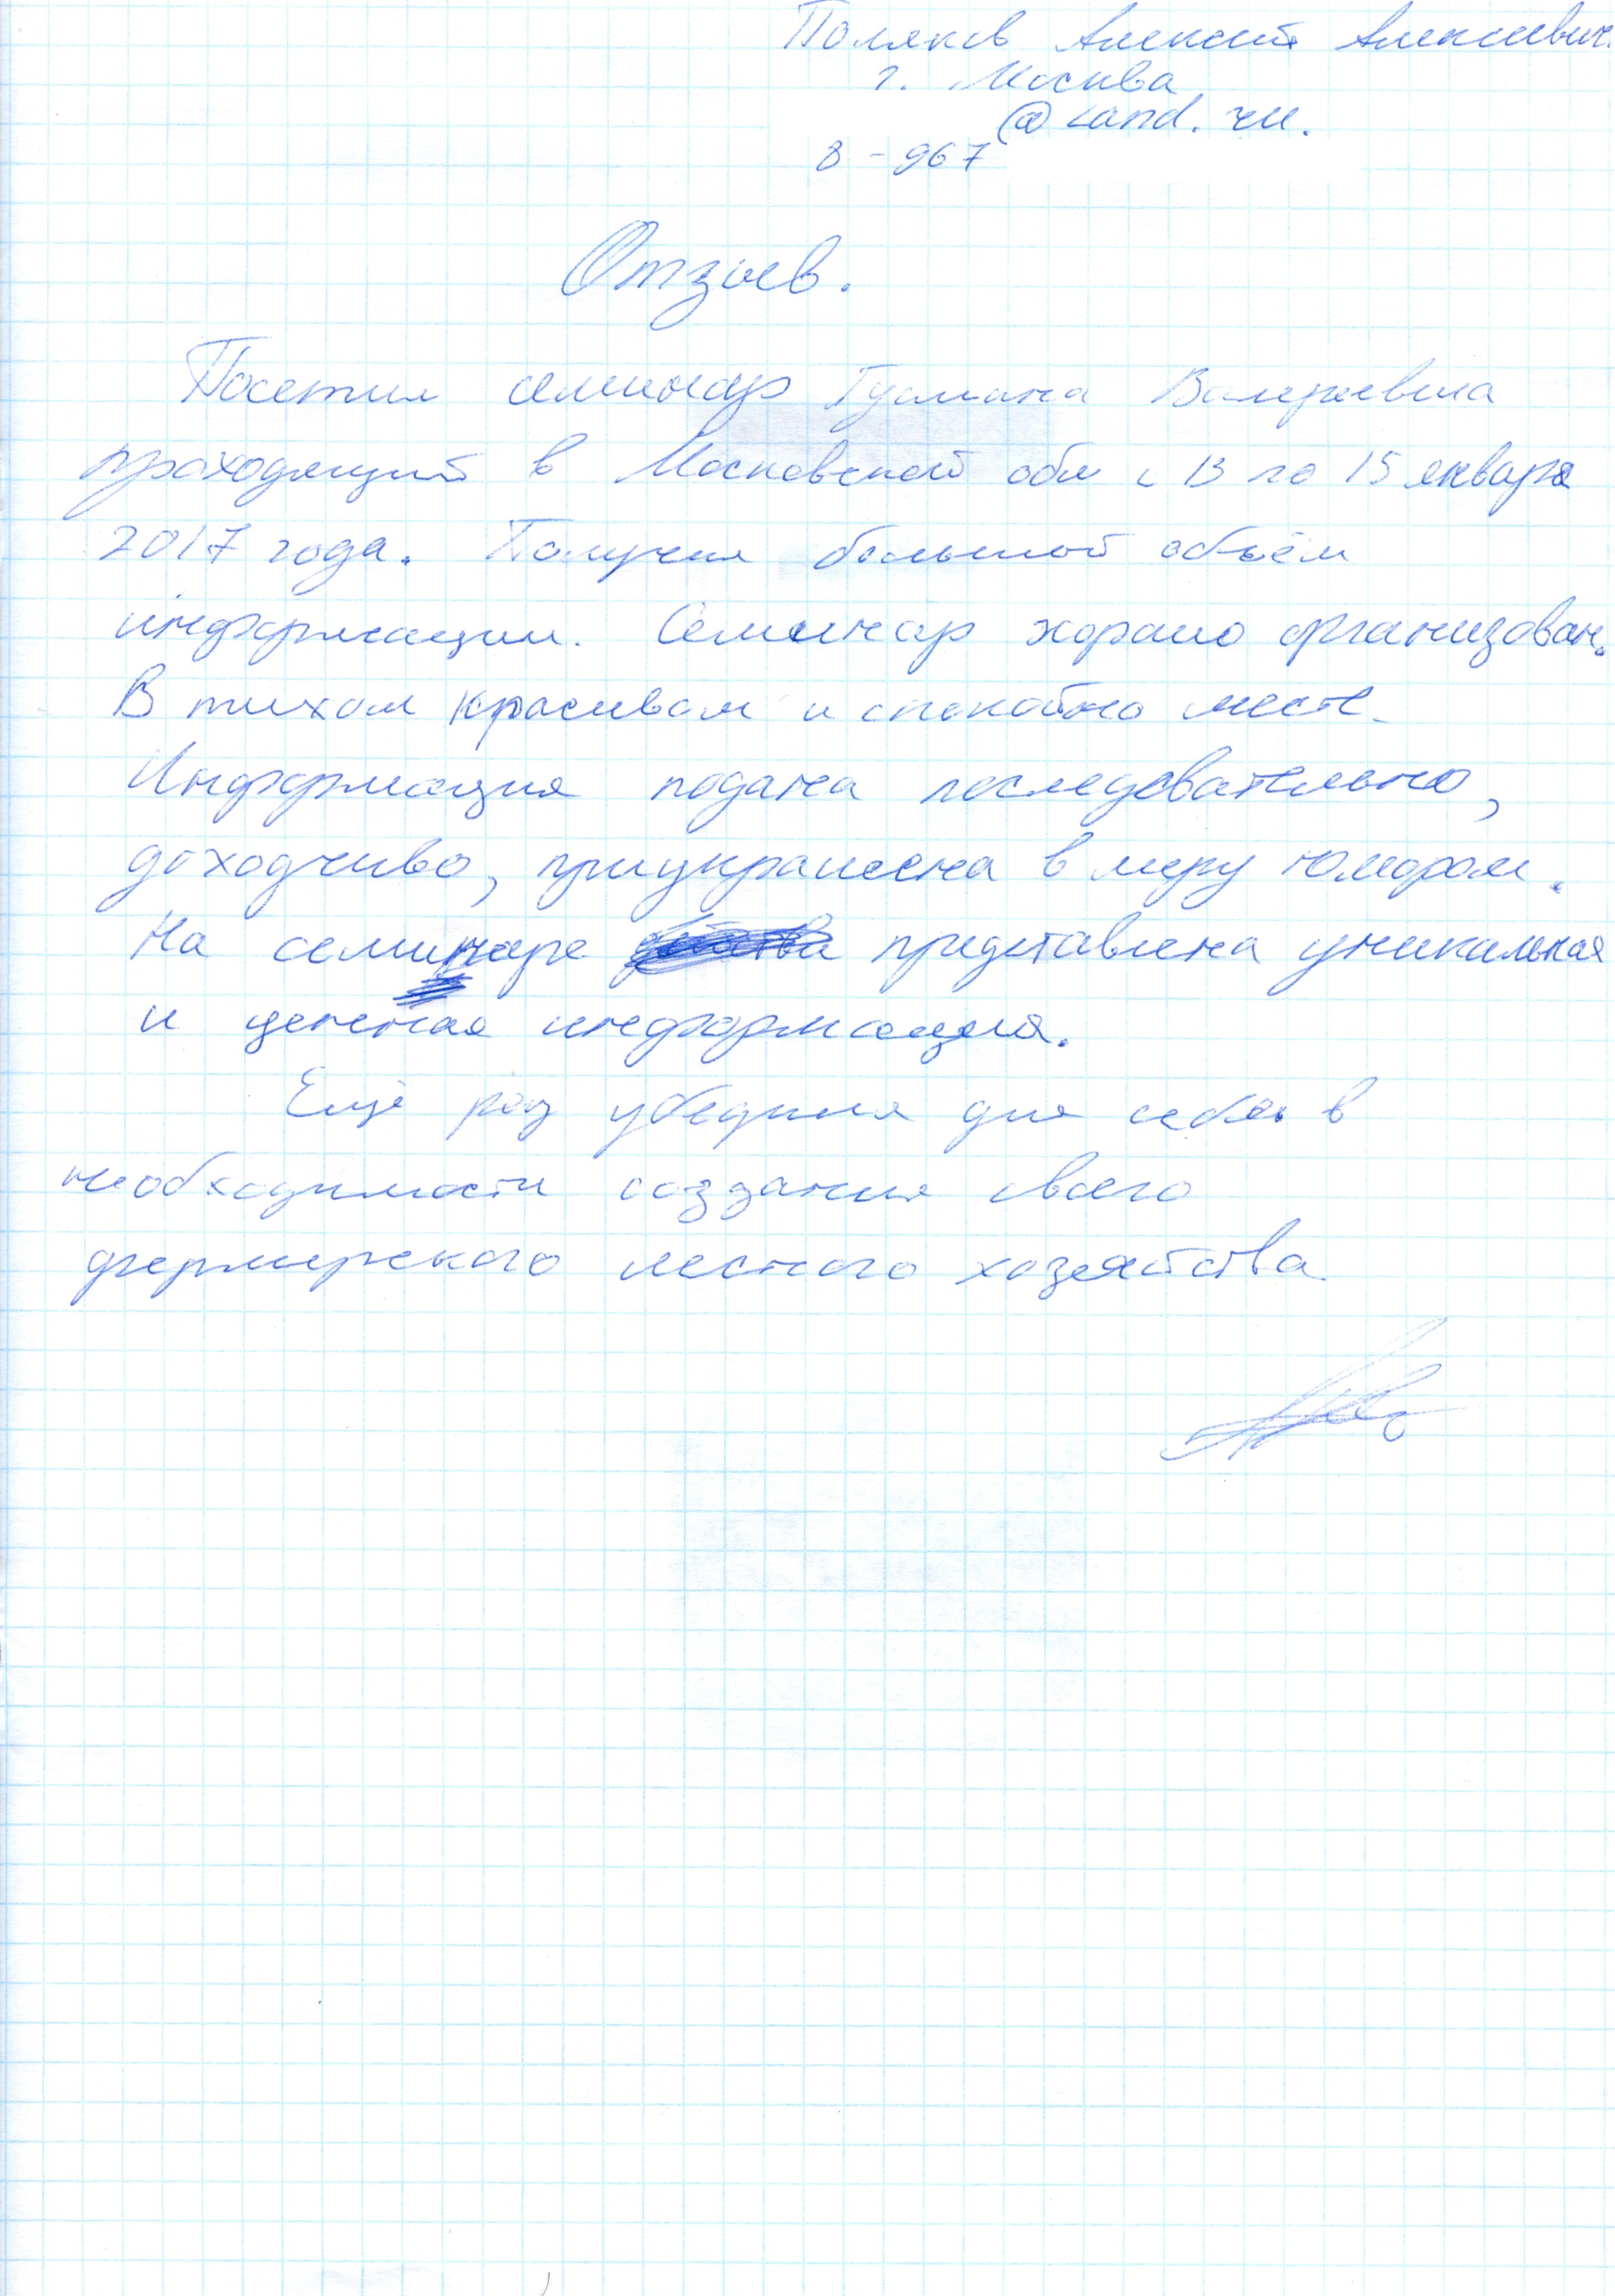 Поляков Алексей Алексеевич.
г. Москва
@land.ru.
8-967
Отзыв.
Посетил семинар Гусмана Валериевича
проходящий в Московской обл с 13 по 15 января
2017 года. Получил большой объём
информации. Семинар хорошо организован.
В тихом красивом и спокойно месте.
Информация подана последовательно,
доходчиво, приукрашена в меру юмором.
На семинаре представлена уникальная
и ценная информация.
Ещё раз убедился для себя в
необходимости создания своего
фермерского лесного хозяйства